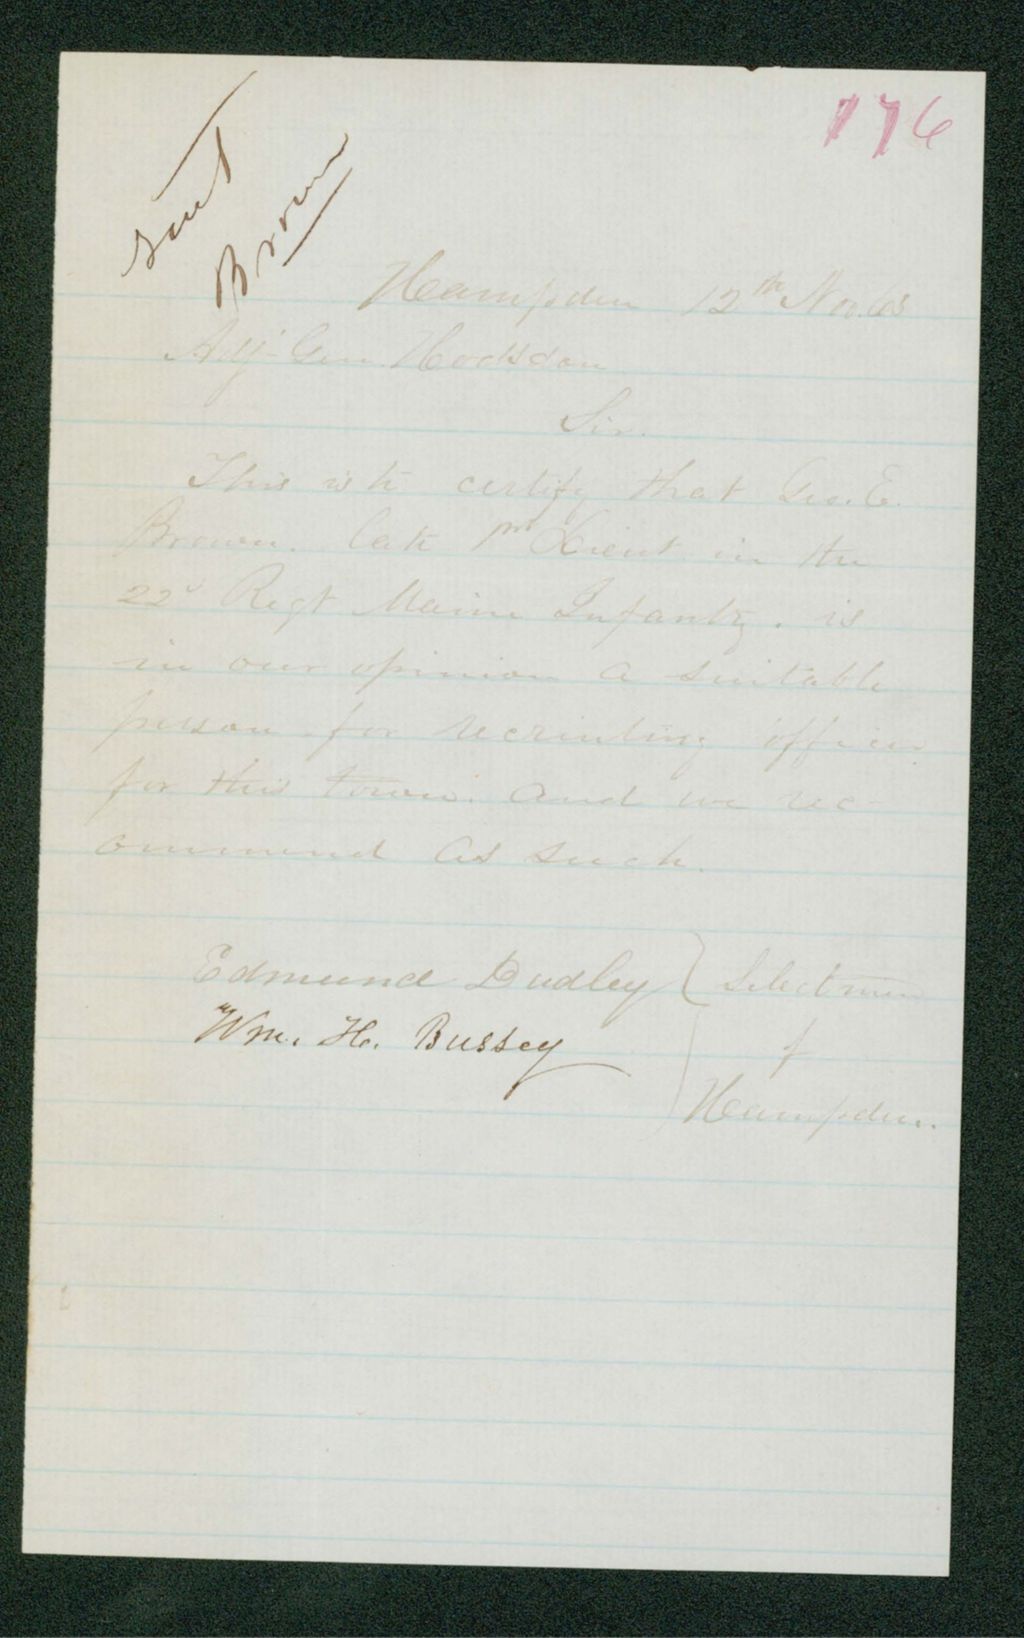 176
sent
Brown
Hampden 12th Nov. 63
Adj- Gen. Hodsdon
Sir.
This is to certify that Geo. E.
Brown. late 1st Lieut in the
22d Regt Maine Infantry. is
in our opinion a suitable
person for recruiting officer
for this town. and we rec-
ommend as such.
Edmund Dudley } Selectmen
Wm. H. Bussey } of
Hampden.